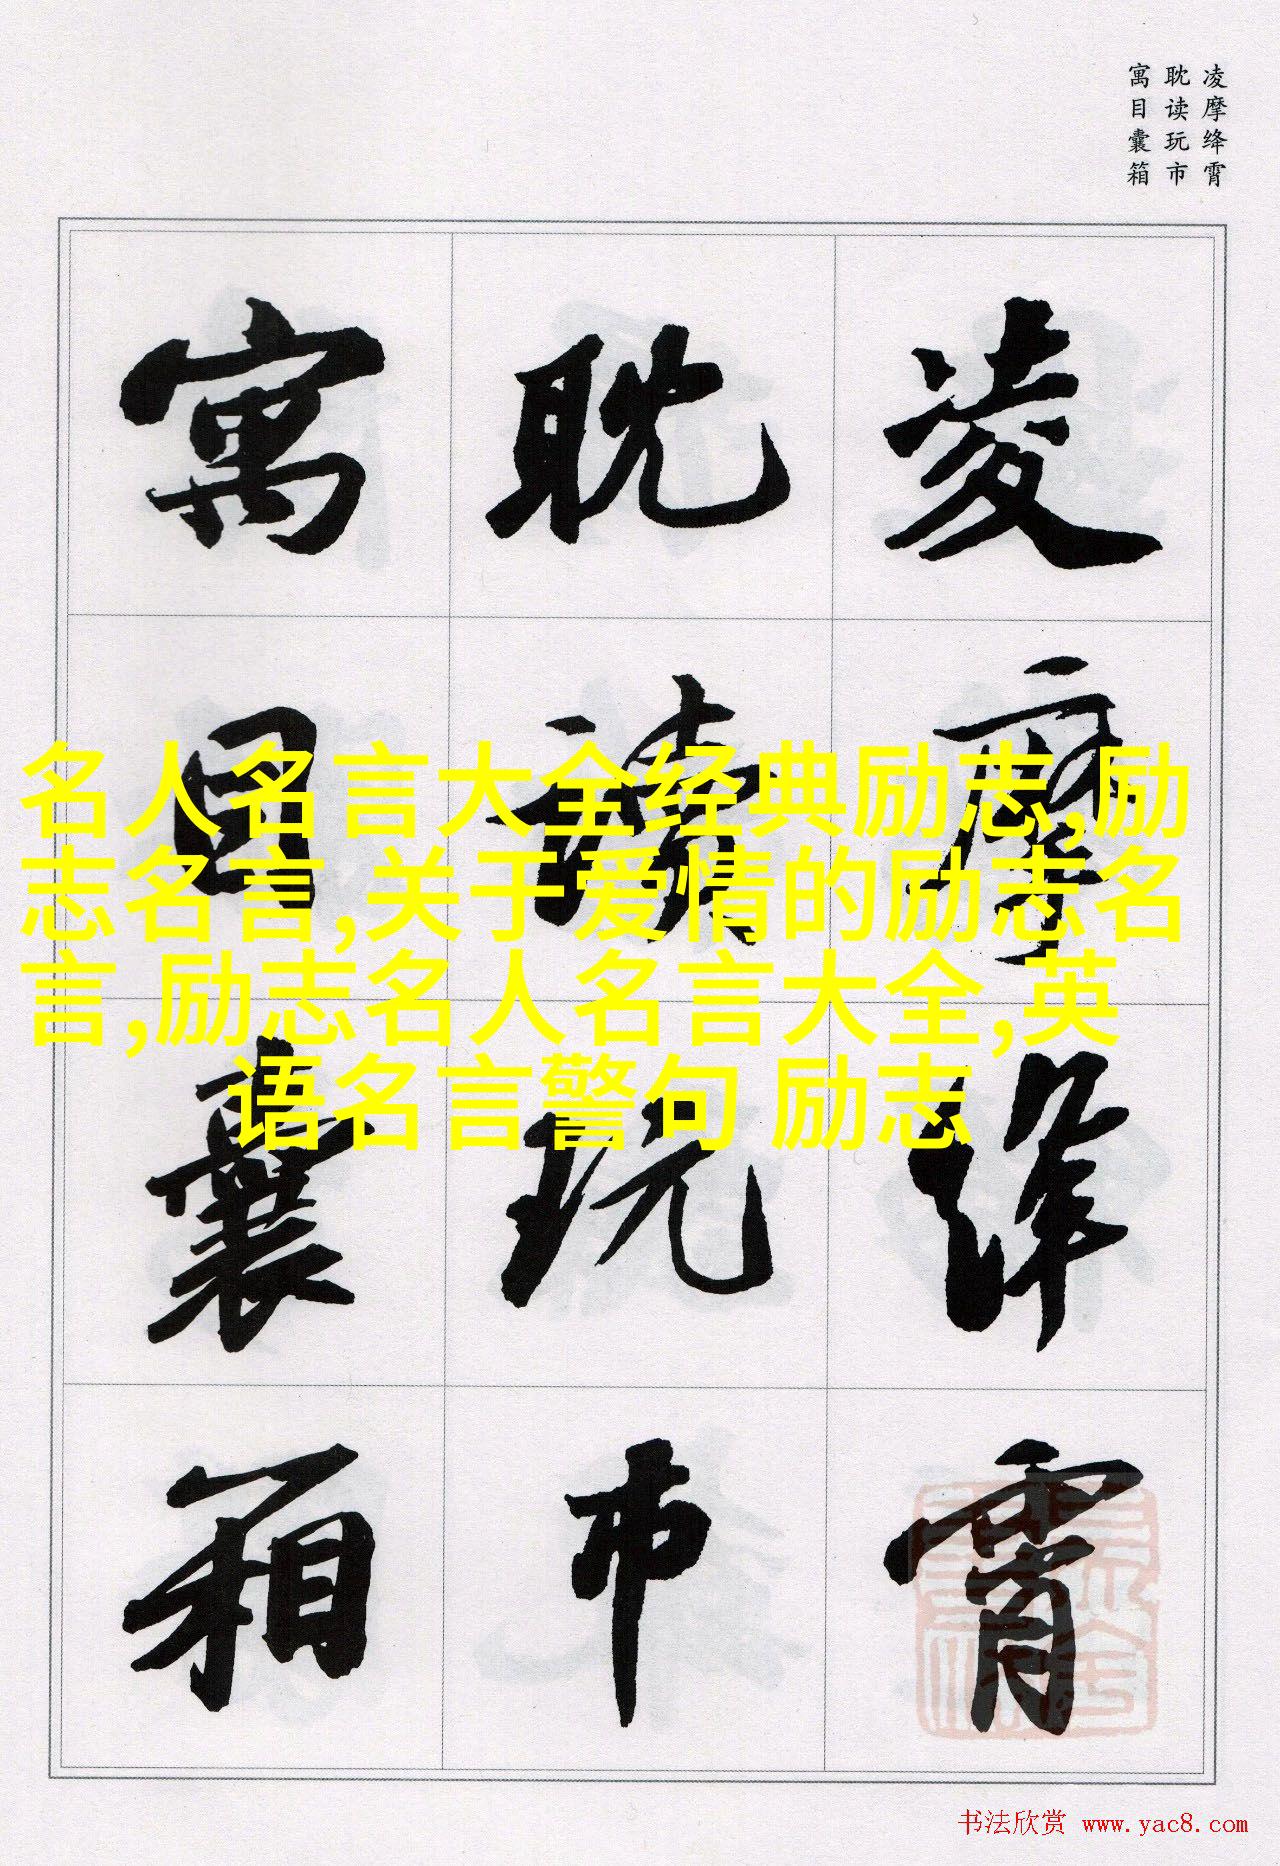 凌摩绛霄
耽读玩市
寓目囊箱
凌摩绛霄
耽读玩市
寓目囊箱
名人名言大全经典励志,励
志名言,关于爱情的励志名
言,励志名人名言大全,英
语名言警句 励志
书法欣赏 www.yac8.com